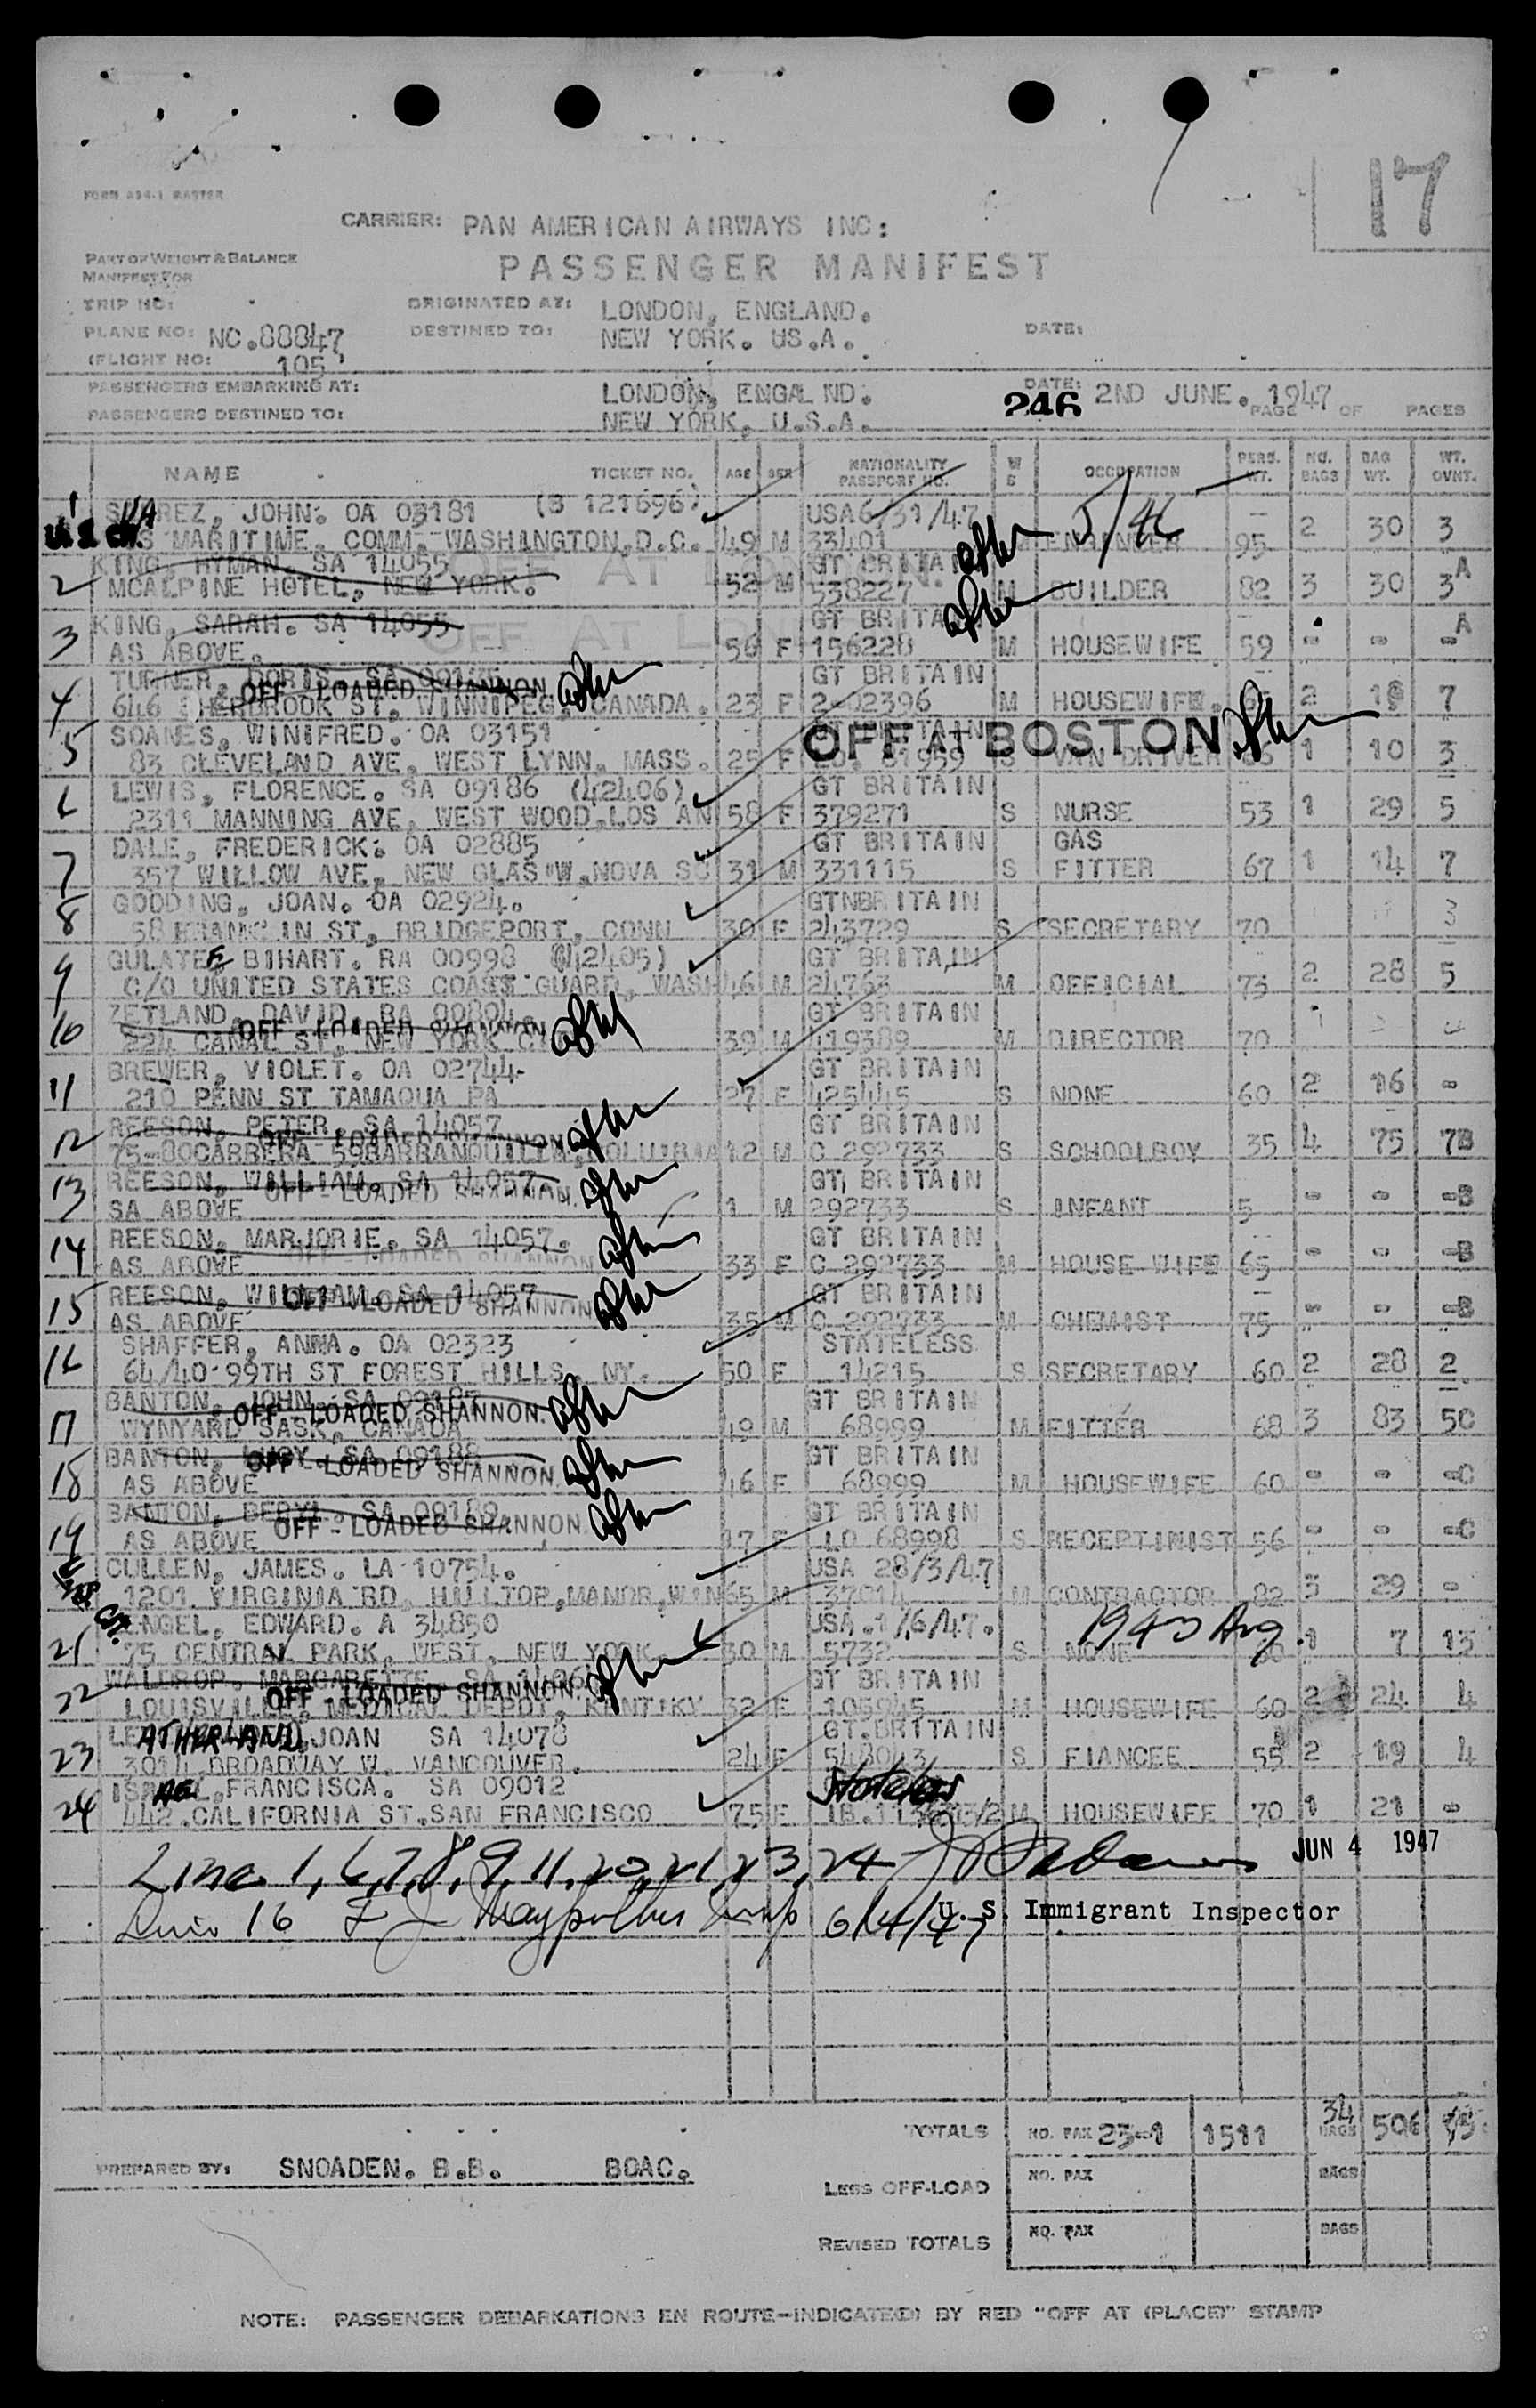 17
FORM 494-1 MASTER
CARRIER: PAN AMERICAN AIRWAYS INC:
PART OF WEIGHT & BALANCE
MANIFEST FOR
PASSENGER MANIFEST
TRIP NO:
ORIGINATED AT: LONDON, ENGLAND.
PLANE NO: NC.88847
DESTINED TO: NEW YORK. US.A.
DATE:
(FLIGHT NO: 105
PASSENGERS EMBARKING AT: LONDON, ENGA ND.
DATE: 2ND JUNE. 1947
246
PAGE OF PAGES
PASSENGERS DESTINED TO: NEW YORK, U.S.A.
NAME TICKET NO. AGE SEX NATIONALITY PASSPORT NO. M S OCCUPATION PERS. WT. NO. BAGS BAG WT. WT. OVHT.
1 SUAREZ, JOHN. OA 03181 (B 121696) USA 6/31/47 5/46
MARITIME. COMM. WASHINGTON.D.C. 49 M 33401 ENGINEER 95 2 30 3
KING, HYMAN. SA 14055 OFF AT LONDON. GT BRITAIN
2 MCALPINE HOTEL, NEW YORK. 52 M 538227 M BUILDER 82 3 30 3 A
KING, SARAH. SA 14055 GT BRITAIN
3 AS ABOVE. 56 F 156228 M HOUSEWIFE 59 - - - A
TURNER, DORIS. SA OFF - LOADED SHANNON GT BRITAIN
4 646 SHERBROOK ST. WINNIPEG, CANADA. 23 F 2-02396 M HOUSEWIFE. 2 18 7
SOANES, WINIFRED. OA 03151 OFF AT BOSTON
5 83 CLEVELAND AVE, WEST LYNN, MASS. 25 F 81959 S VAN DRIVER 66 1 10 3
LEWIS, FLORENCE. SA 09186 (42406) GT BRITAIN
6 2311 MANNING AVE, WEST WOOD.LOS AN 58 F 379271 S NURSE 53 1 29 5
DALE, FREDERICK. OA 02885 GT BRITAIN GAS
7 357 WILLOW AVE, NEW GLAS W.NOVA SC 31 M 331115 S FITTER 67 1 14 7
GOODING, JOAN. OA 02924. GTNBRITAIN
8 58 FRANKLIN ST, BRIDGEPORT, CONN 30 F 243729 S SECRETARY 70 3
GULATEE BIHART. RA 00998 (42405) GT BRITAIN
9 C/O UNITED STATES COAST GUARD, WASH 46 M 24763 M OFFICIAL 73 2 28 5
ZETLAND, DAVID. RA 00804. OFF - LOADED SHANNON GT BRITAIN
10 224 CANAL ST. NEW YORK C 39 M 419389 M DIRECTOR 70
BREWER, VIOLET. OA 02744. GT BRITAIN
11 210 PENN ST TAMAQUA PA 27 F 425445 S NONE 60 2 16 -
REESON, PETER. SA 14057 OFF - LOADED SHANNON GT BRITAIN
12 75-80CARRERA 59BARRANQUILLA, COLUMBIA 12 M C 292733 S SCHOOLBOY 35 4 75 7B
REESON, WILLIAM. SA 14057 OFF - LOADED SHANNON. GT BRITAIN
13 SA ABOVE 1 M 292733 S INFANT 5 - - -B
REESON, MARJORIE. SA 14057. OFF - LOADED SHANNON GT BRITAIN
14 AS ABOVE 33 F C 292733 M HOUSE WIFE 65 - - -B
REESON, WILLIAM. SA 14057 OFF - LOADED SHANNON GT BRITAIN
15 AS ABOVE 35 M C 292733 M CHEMIST 75 - - -B
SHAFFER, ANNA. OA 02323 STATELESS
16 64/40-99TH ST FOREST HILLS, NY. 50 F 14215 S SECRETARY 60 2 28 2
BANTON, JOHN. SA 09187 OFF - LOADED SHANNON. GT BRITAIN
17 WYNYARD SASK, CANADA 49 M 68999 M FITTER 68 3 83 5C
BANTON, LUCY. SA 09188 OFF - LOADED SHANNON. GT BRITAIN
18 AS ABOVE 46 F 68999 M HOUSEWIFE 60 - - -C
BANTON, BERYL. SA 09189 OFF - LOADED SHANNON. GT BRITAIN
19 AS ABOVE 17 F LO 68998 S RECEPTINIST 56 - - -C
CULLEN, JAMES. LA 10754. USA 28/3/47
1201 VIRGINIA RD, HILLTOP,MANOR,WIN 65 M 37014 M CONTRACTOR 82 3 29 -
ENGEL, EDWARD. A 34850 USA.1/6/47. 1943 Aug.
21 75 CENTRAL PARK, WEST, NEW YORK 30 M 5732 S NONE 1 7 13
WALDROP, MARGARETTE. SA OFF - LOADED SHANNON GT BRITAIN
22 LOUISVILLE, MEDICAL DEPOT, KENTIKY 32 F 105945 M HOUSEWIFE 60 2 24 4
LEATHERLAND, JOAN SA 14078 GT.BRITAIN
23 3014 BROADWAY W. VANCOUVER. 24 F 548043 S FIANCEE 55 2 19 4
ISRAEL, FRANCISCA. SA 09012 Stateless
24 442.CALIFORNIA ST.SAN FRANCISCO 75 F M HOUSEWIFE 70 1 21 -
Line 1, 6, 7, 8, 9, 11, 20, 21, 23, 24 JUN 4 1947
Line 16 Insp 6/4/47 U. S. Immigrant Inspector
TOTALS NO. PAX 23-1 1511 34 BAGS 506
PREPARED BY: SNOADEN. B.B. BOAC.
LESS OFF-LOAD NO. PAX BAGS
REVISED TOTALS NO. PAX BAGS
NOTE: PASSENGER DEBARKATIONS EN ROUTE-INDICATED BY RED "OFF AT (PLACE)" STAMP